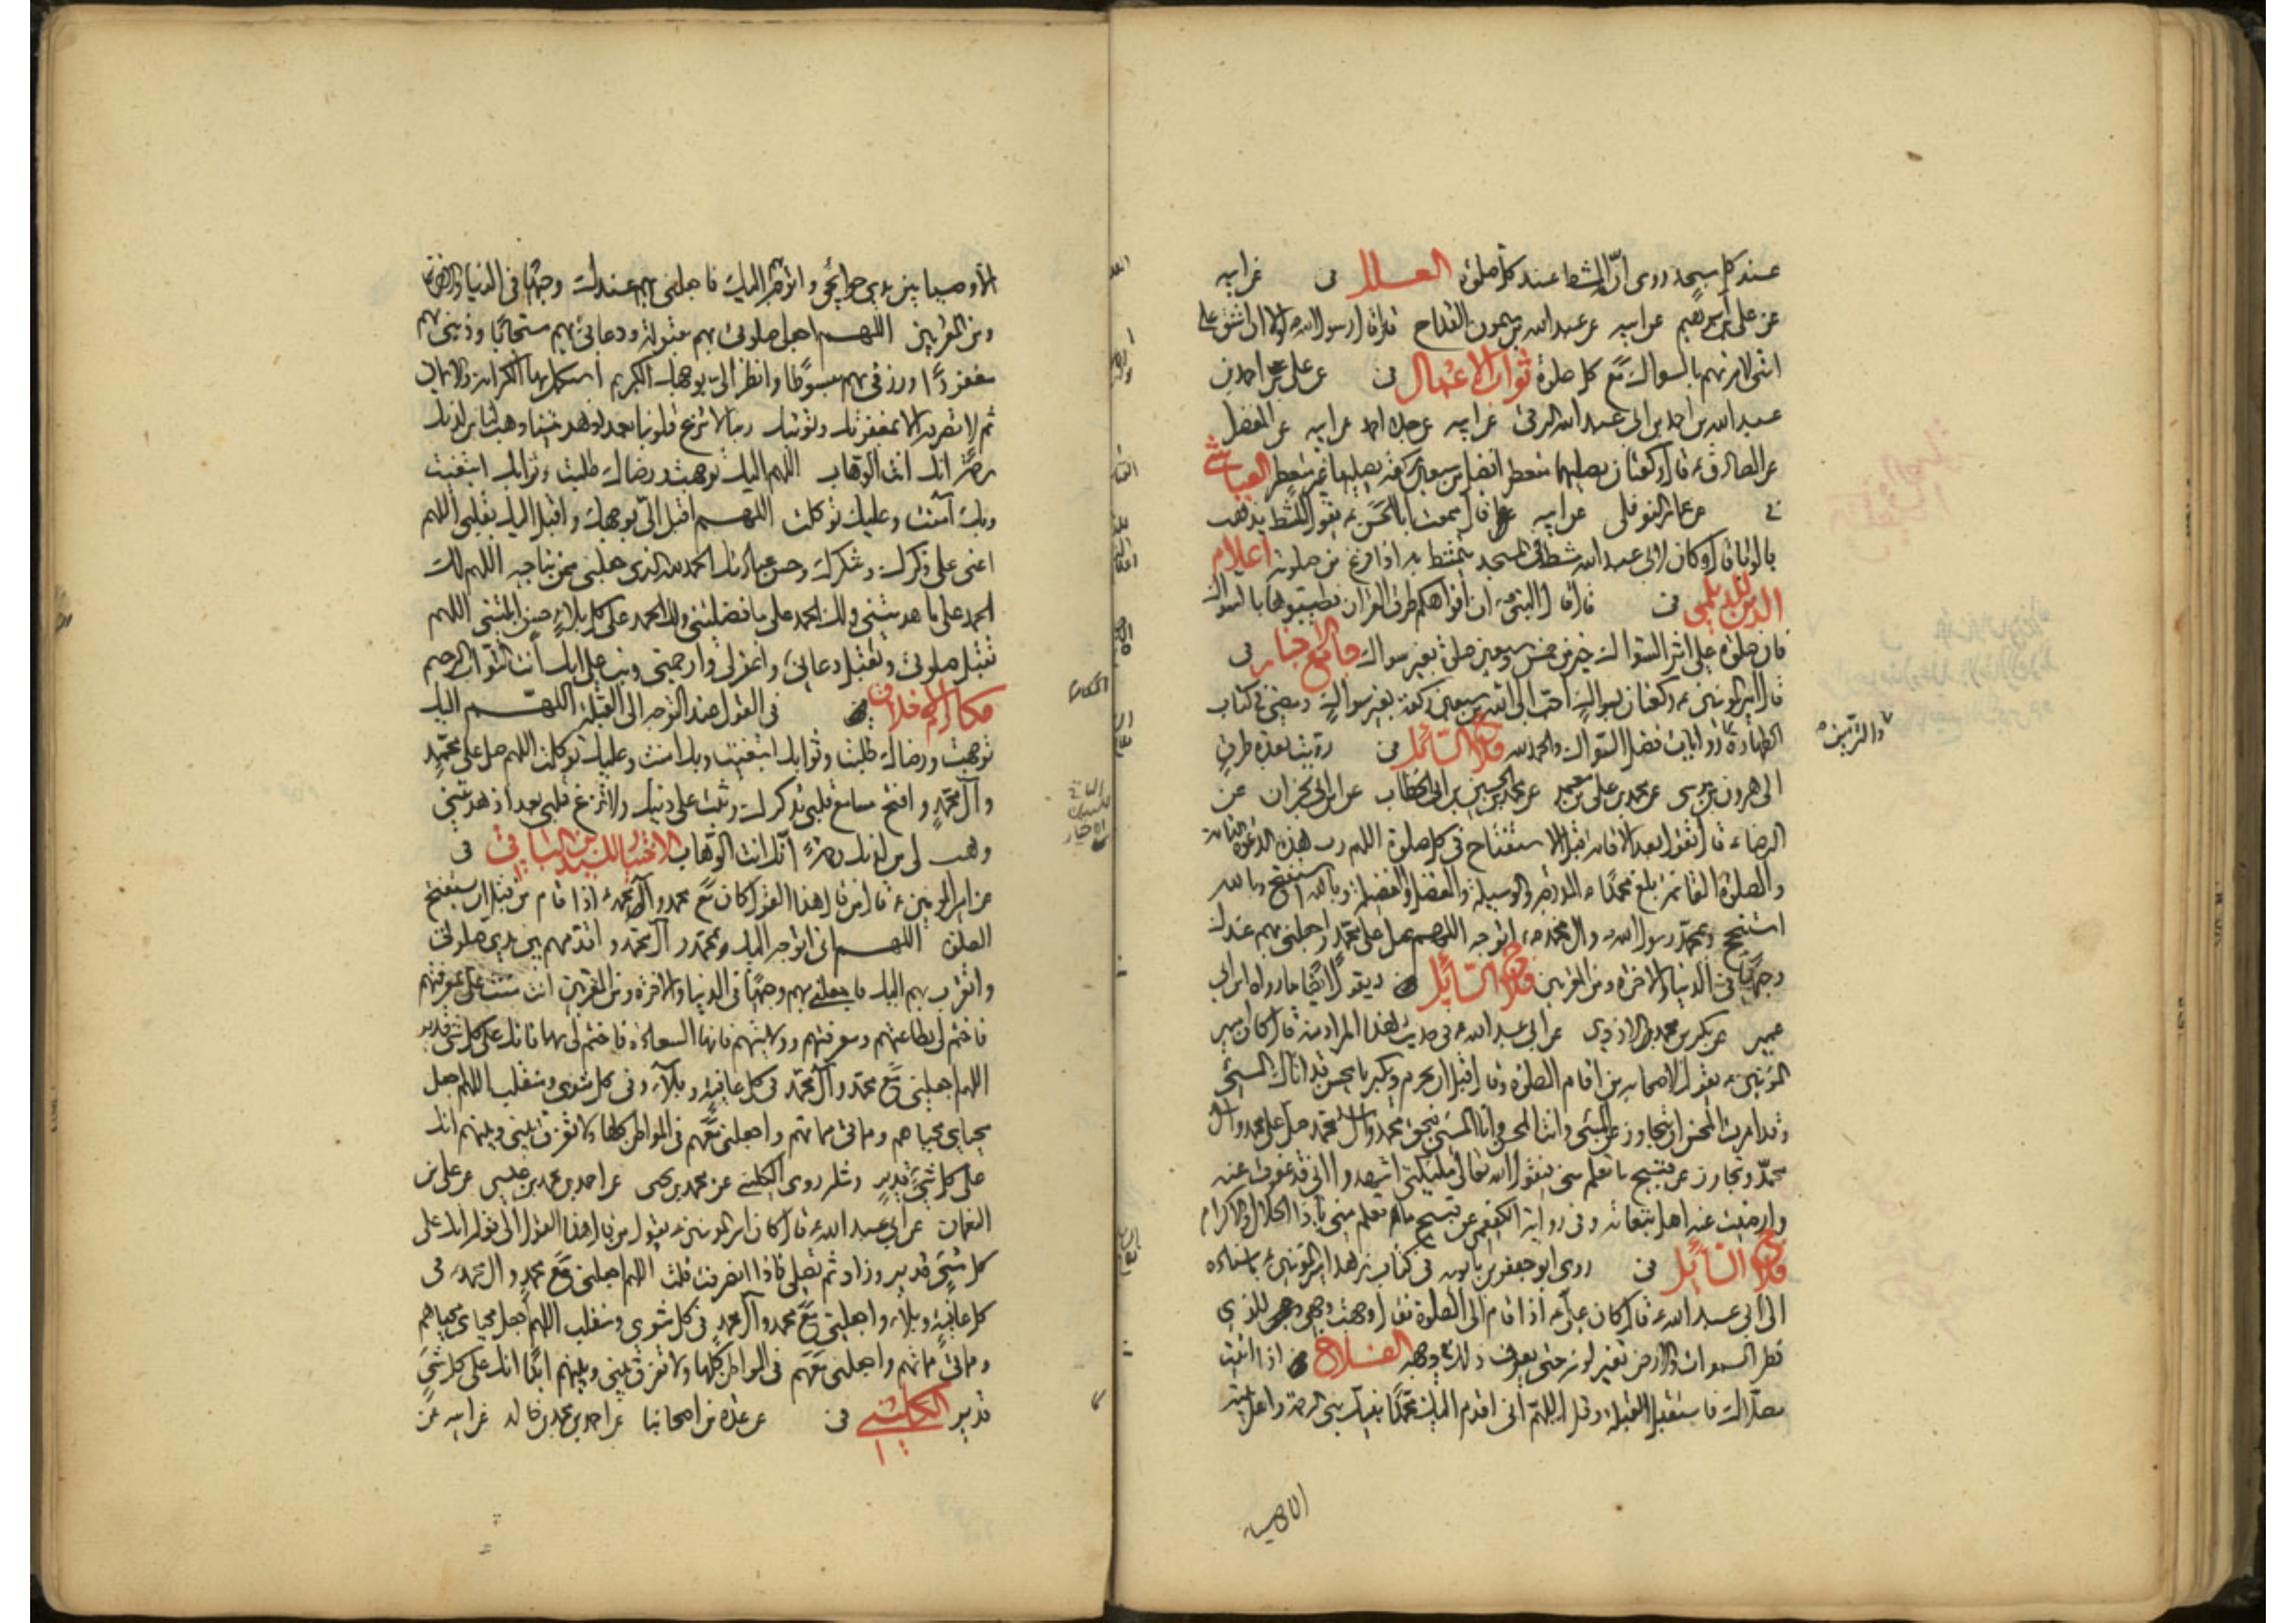 عند كل مسجد روى ان المشط عند كل صلوة العلل فى عن ابيه
عن على بن ابرهيم عن ابيه عن عبدالله بن ميمون القداح قال قال رسول الله لولا ان اشق على
امتى لامرتهم بالسواك مع كل صلوة ثواب الاعمال فى عن على بن احمد بن
عبدالله بن احمد بن ابى عبدالله البرقى عن ابيه عن جده احمد عن ابيه عن المفضل
عن الصادق قال ركعتان يصليهما متعطر افضل من سبعين ركعة يصليها غير متعطر العياشى
فى عن عمار النوفلى عن ابيه قال سمعت ابا الحسن يقول المشط يذهب
بالوباء قال وكان لابى عبدالله مشط فى المسجد يتمشط به اذا فرغ من صلوته اعلام
الدين للديلمى فى قال قال النبى ان افواهكم طرق القران فطيبوها بالسواك
فان صلوة على اثر السواك خير من خمس وسبعين صلوة بغير سواك جامع الاخبار فى
قال امير المومنين ركعتان بسواك احب الى الله من سبعين ركعة بغير سواك ومضى فى كتاب
الطهارة روايات فضل السواك والحمد لله فلاح السائل فى رويت بعدة طرق
والتزين
الى هرون بن موسى عن محمد بن على بن معمر عن محمد بن الحسين بن ابى الخطاب عن ابن ابى نجران عن
الرضا قال تقول بعد الاقامة قبل الاستفتاح فى كل صلوة اللهم رب هذه الدعوة التامة
والصلوة القائمة بلغ محمدا الدرجة والوسيلة والفضل والفضيلة وبالله استفتح وبالله
استنجح وبمحمد رسول الله وال محمد اتوجه اللهم صل على محمد واجعلنى بهم عندك
وجيها فى الدنيا والاخرة ومن المقربين فلاح السائل ويقول ايضا ما رواه ابن ابى
عمير عن بكر بن محمد الازدى عن ابى عبدالله فى حديث هذا المراد منه قال كان امير
المؤمنين يقول لاصحابه من اقام الصلوة وقال قبل ان يحرم ويكبر يا محسن قد اتاك المسئ
وقد امرت المحسن ان يتجاوز عن المسئ وانت المحسن وانا المسئ فبحق محمد وال محمد صل على محمد وال
محمد وتجاوز عن قبيح ما تعلم منى فيقول الله تعالى ملئكتى اشهدوا انى قد عفوت عنه
وارضيت عنه اهل تبعاته وفى رواية الكفعمى عن قبيح ما تعلم منى يا ذا الجلال والاكرام
فلاح السائل فى روى ابو جعفر بن بابويه فى كتاب زهد امير المومنين باسناده
الى ابى عبدالله قال كان على اذا قام الى الصلوة فقال وجهت وجهى للذى
فطر السموات والارض تغير لونه حتى يعرف ذلك فى وجهه الفلاح اذا اتيت
مصلاك فاستقبل القبلة وقل اللهم انى اقدم اليك محمدا نبيك نبى الرحمة واهل بيته
الاوصياء بين يدى حوائجى واتوجه اليك فاجعلنى بهم عندك وجيها فى الدنيا والاخرة
ومن المقربين اللهم اجعل صلوتى بهم مقبولة ودعائى بهم مستجابا وذنبى بهم
مغفورا ورزقى بهم مبسوطا وانظر الى بوجهك الكريم استكمل بها الكرامة والايمان
ثم لا تصرفه الا بمغفرتك وتوبتك ربنا لا تزغ قلوبنا بعد اذ هديتنا وهب لنا من لدنك
رحمة انك انت الوهاب اللهم اليك توجهت ورضاك طلبت وثوابك ابتغيت
وبك آمنت وعليك توكلت اللهم اقبل الى بوجهك واقبل اليك بقلبى اللهم
اعنى على ذكرك وشكرك وحسن عبادتك الحمد لله الذى جعلنى ممن يناجيه اللهم لك
الحمد على ما هديتنى ولك الحمد على ما فضلتنى ولك الحمد على كل بلاء حسن ابليتنى اللهم
تقبل صلوتى وتقبل دعائى واغفر لى وارحمنى وتب على انك انت التواب الرحيم
مكارم الاخلاق فى القول عند التوجه الى القبلة اللهم اليك
توجهت ورضاك طلبت وثوابك ابتغيت وبك امنت وعليك توكلت اللهم صل على محمد
وآل محمد وافتح مسامع قلبى لذكرك وثبت على دينك ولا تزغ قلبى بعد اذ هديتنى
وهب لى من لدنك رحمة انك انت الوهاب الاختيار للسيد بن الباقى فى
عن امير المومنين قال من قال هذا القول كان مع محمد وآل محمد اذا قام من قبل ان يستفتح
الصلوة اللهم انى اتوجه اليك بمحمد وآل محمد واقدمهم بين يدى صلوتى
واتقرب بهم اليك فاجعلنى بهم وجيها فى الدنيا والاخرة ومن المقربين انت مننت على بمعرفتهم
فاختم لى بطاعتهم ومعرفتهم وولايتهم فانها السعادة فاختم لى بها فانك على كل شئ قدير
اللهم اجعلنى مع محمد وآل محمد فى كل عافية وبلاء وفى كل مثوى ومنقلب اللهم اجعل
محياى محياهم ومماتى مماتهم واجعلنى معهم فى المواطن كلها ولا تفرق بينى وبينهم انك
على كل شئ قدير ومثله روى الكلينى عن محمد بن يحيى عن احمد بن محمد بن عيسى عن على بن
النعمان عن ابى عبدالله قال كان امير المومنين يقول من قال هذا القول الى قوله انك على
كل شئ قدير وزاد ثم تصلى فاذا انصرفت قلت اللهم اجعلنى مع محمد وال محمد فى
كل عافية وبلاء واجعلنى مع محمد وآل محمد فى كل مثوى ومنقلب اللهم اجعل محياى محياهم
ومماتى مماتهم واجعلنى معهم فى المواطن كلها ولا تفرق بينى وبينهم ابدا انك على كل شئ
قدير الكلينى فى عن عدة من اصحابنا عن احمد بن محمد بن خالد عن ابيه عن